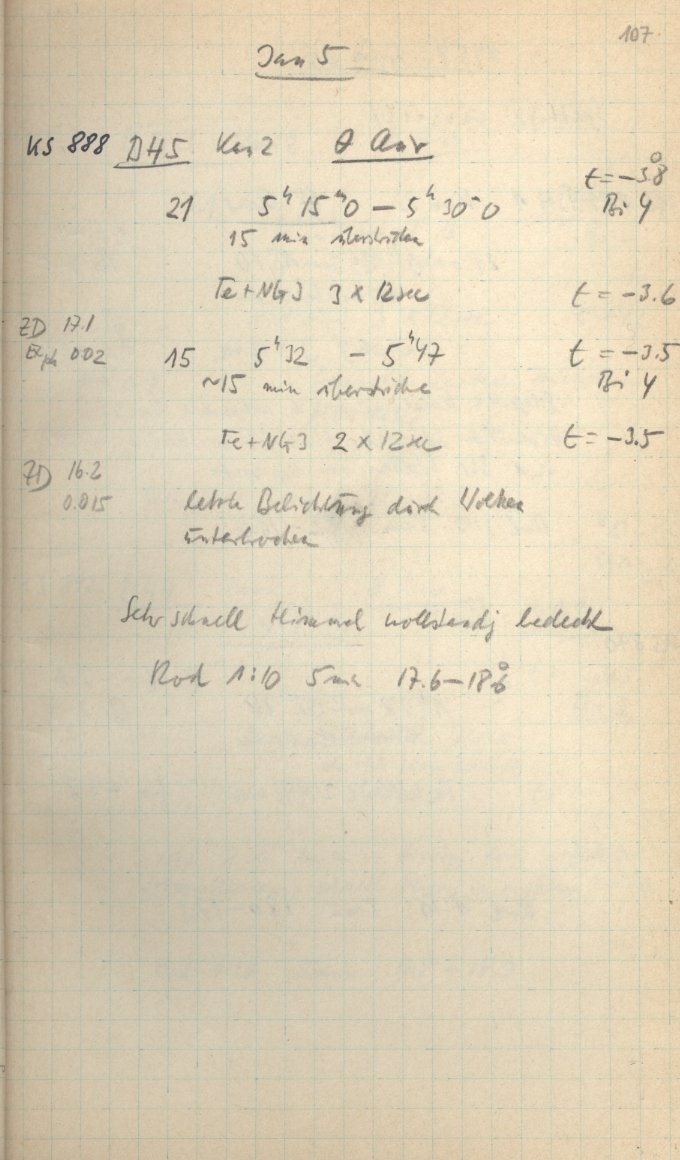 107
Jan 5
KS 888 DH5 Kas 2 θ Aur
t = -3.°8
21 5ʰ 15ᵐ0 - 5ʰ 30ᵐ0 Bi 4
15 min überstrichen
Te+NG3 3 x 12 sec t = -3.6
ZD 17.1
0.02 15 5ʰ32 - 5ʰ47 t = -3.5
~15 min überstrichen Bi 4
Te+NG3 2 x 12 sec t = -3.5
ZD 16.2
0.015 letzte Belichtung durch Wolken
unterbrochen
Sehr schnell Himmel vollständig bedeckt
Rod 1:10 5 min 17.6 - 18.°6